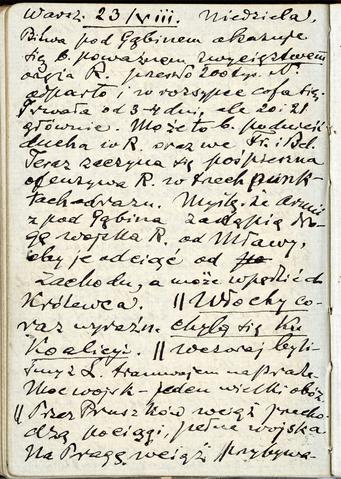 Warsz. 23/VIII. Niedziela.
Bitwa pod Gąbinem okazuje
się b. poważnem zwycięstwem
oręża R. przeszło 200 tys. N.
odparto i w rozsypce cofa się.
Trwała od 3-4 dni, ale 20 i 21
głównie. Może to b. podnieść
ducha w R. oraz we Fr. i Bel.
Teraz zaczyna się pośpieszna
ofenzywa R. w trzech punk-
tach odrazu. Myślę, że armie
z pod Gąbina zastąpią dro-
gę wojska R. od Mławy,
aby je odciąć od
Zachodu, a może wpędzić do
Królewca. || Włochy co-
raz wyraźn. chylą się ku
Koalicyi. || wczoraj byli-
śmy z L. tramwajem na Pradze
Moc wojsk – jeden wielki obóz.
|| Przez Pruszków wciąż przecho-
dzą pociągi, pełne wojska
Na Pragę wciąż przybywa-